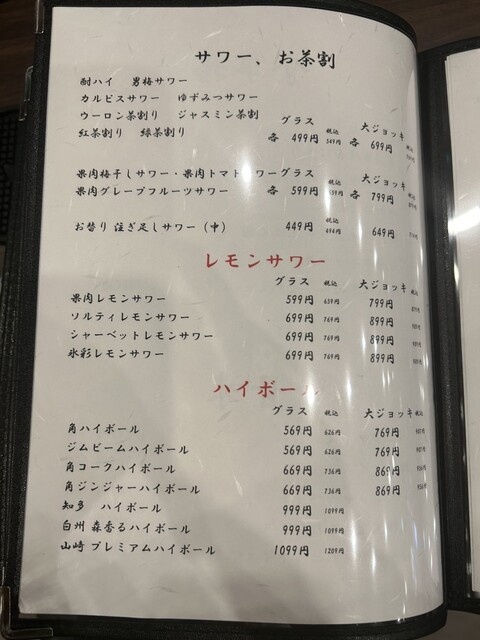 サワー、お茶割
酎ハイ 男梅サワー
カルピスサワー ゆずみつサワー
ウーロン茶割り ジャスミン茶割 グラス 大ジョッキ
紅茶割り 緑茶割り 各 499円 税込 549円 各 699円
果肉梅干しサワー・果肉トマトサワー グラス 税込 大ジョッキ
果肉グレープフルーツサワー 各 599円 659円 各 799円
お替り 注ぎ足しサワー（中） 449円 税込 494円 649円
レモンサワー
グラス 税込 大ジョッキ 税込
果肉レモンサワー 599円 659円 799円
ソルティレモンサワー 699円 769円 899円
シャーベットレモンサワー 699円 769円 899円
氷彩レモンサワー 699円 769円 899円
ハイボール
グラス 税込 大ジョッキ 税込
角ハイボール 569円 626円 769円
ジムビームハイボール 569円 626円 769円
角コークハイボール 669円 736円 869円
角ジンジャーハイボール 669円 736円 869円
知多 ハイボール 999円 1099円
白州 森香るハイボール 999円 1099円
山崎 プレミアムハイボール 1099円 1209円